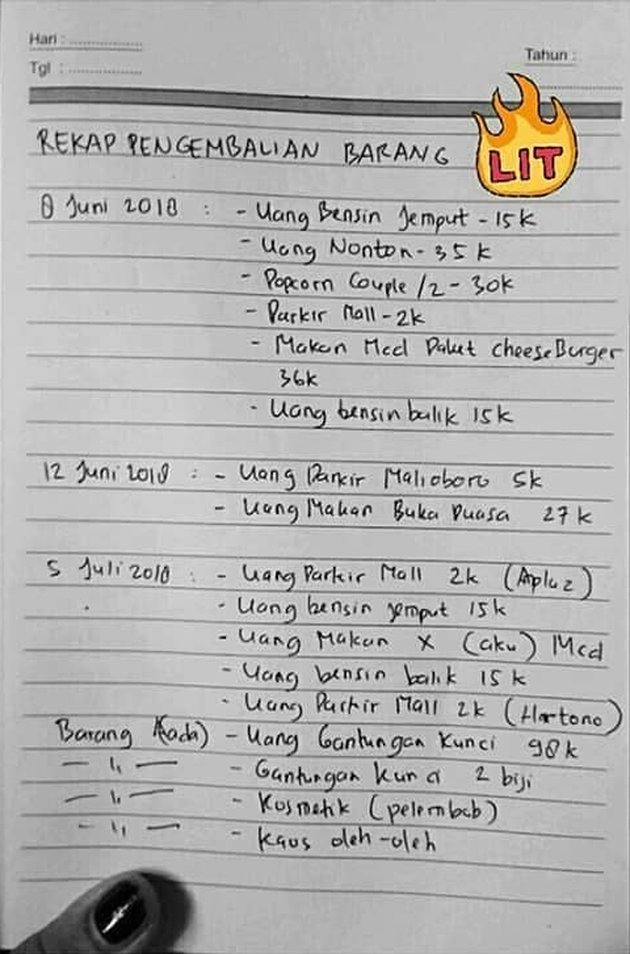 Hari : ................
Tahun :
Tgl : ................
REKAP PENGEMBALIAN BARANG
LIT
8 Juni 2018 : - Uang Bensin Jemput - 15k
- Uang Nonton - 35 k
- Popcorn Couple /2 - 30k
- Parkir Mall - 2k
- Makan Mcd Paket CheeseBurger
36k
- Uang bensin balik 15k
12 Juni 2018 : - Uang Parkir Malioboro 5k
- Uang Makan Buka Puasa 27 k
5 Juli 2018 : - Uang Parkir Mall 2k (Aplaz)
- Uang bensin jemput 15k
- Uang Makan X (aku) Mcd
- Uang bensin balik 15 k
- Uang Parkir Mall 2k (Hartono)
Barang (Kado) - Uang Gantungan Kunci 98k
— 1, — - Gantungan Kunci 2 biji
— 1, — - Kosmetik (pelembab)
— 1, — - Kaos oleh-oleh